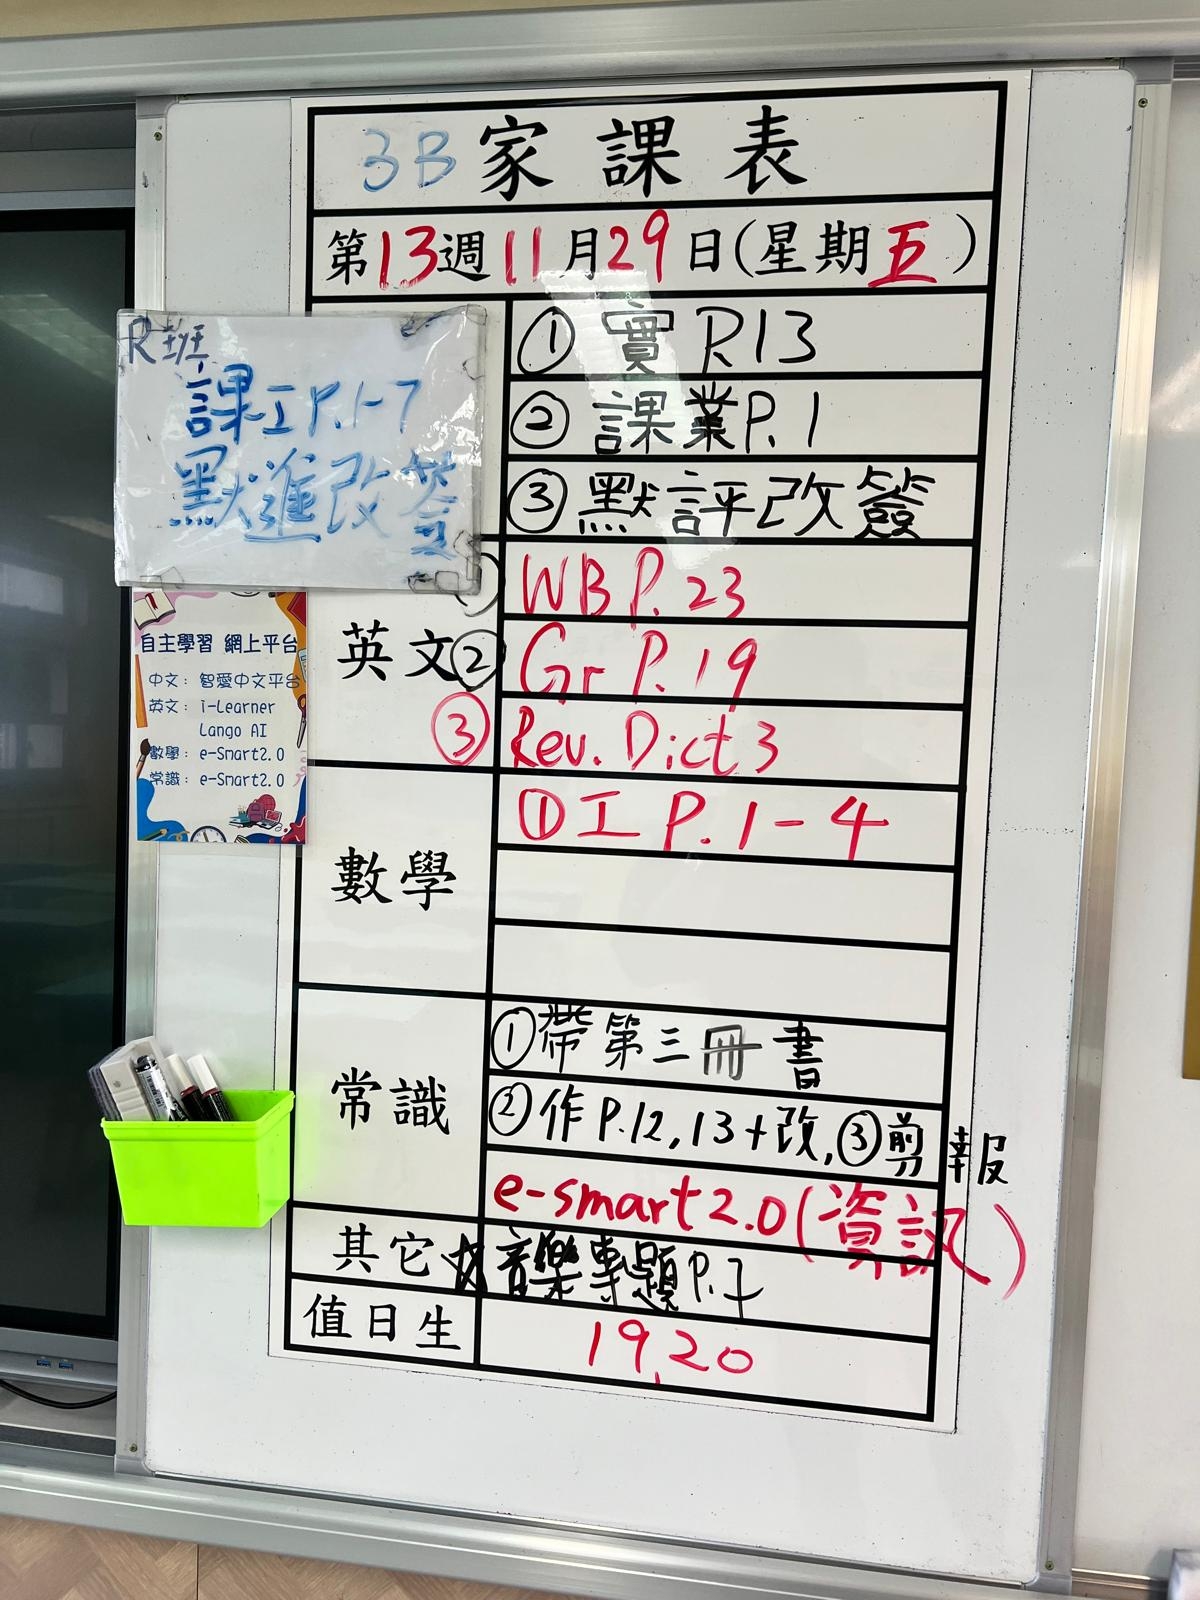 3B 家課表
第13週11月29日(星期五)
R班
課工P.1-7
默進改簽
① 實R13
② 課業P.1
③ 默評改簽
英文
WB P.23
② Gr P.19
③ Rev. Dict 3
自主學習 網上平台
中文：智愛中文平台
英文：i-Learner
Lango AI
數學：e-Smart2.0
常識：e-Smart2.0
數學
① 工 P.1-4
常識
① 帶第三冊書
② 作P.12,13+改,③剪報
e-smart2.0(資訊)
其它
音樂專題P.7
值日生
19,20